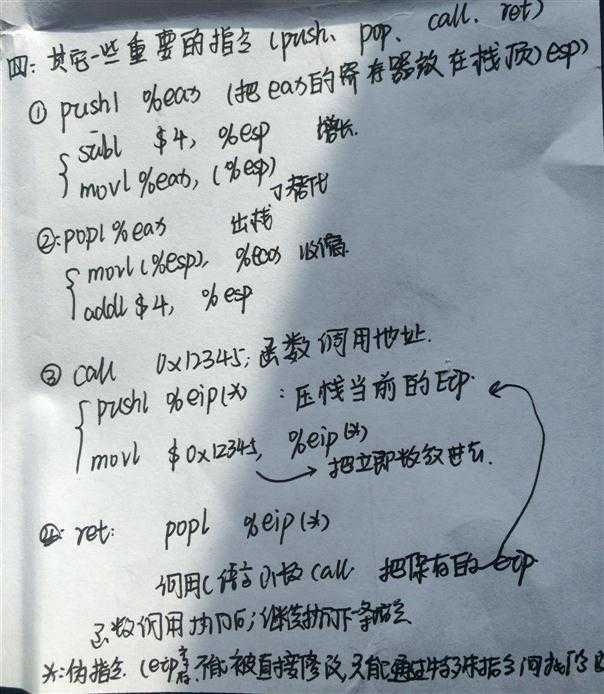 四: 其它一些重要的指令 (push、pop、call、ret)
① pushl %eax (把eax的寄存器放在栈顶) esp)
subl $4, %esp 增长.
movl %eax, (%esp)
替代
②: popl %eax 出栈
movl (%esp), %eax 收缩
addl $4, %esp
③ call 0x12345; 函数调用地址.
pushl %eip(*) : 压栈当前的Eip.
movl $0x12345, %eip(*)
把立即数放进去.
④: ret: popl %eip(*)
调用C语言 call 把保存的eip
函数调用执行后; 继续执行下一条指令
*: 伪指令. (eip寄 不能被直接修改, 只能通过特殊指令间接修